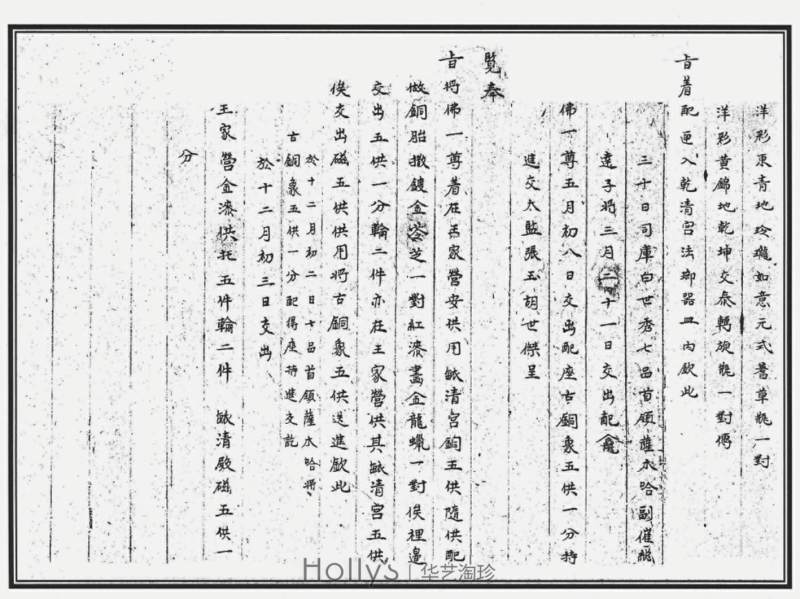 洋彩東青地玲瓏如意元式蓍草瓶一對
洋彩黃錦地乾坤交泰轉旋瓶一對傳
旨着配匣入乾清宮法瑯器皿內欽此
三十日司庫白世秀七品首領薩木哈副催總
達子將三月二十一日交出配龕
佛一尊五月初八日交出配座古銅象五供一分持
進交太監張玉胡世傑呈
覽奉
旨將佛一尊着在王家營安供用毓清宮銅五供隨供配
做銅胎撒鍍金 芝一對紅漆畫金龍蠟一對俟裡邊
交出五供一分輪二件亦在王家營供其毓清宮五供
俟交出磁五供供用將古銅象五供送進欽此
於十二月初二日七品首領薩木哈將
古銅象五供一分配得座持進交訖
於十二月初三日交出
王家營金漆供托五件輪二件 毓清殿磁五供一
分
Holly's 华艺淘珍